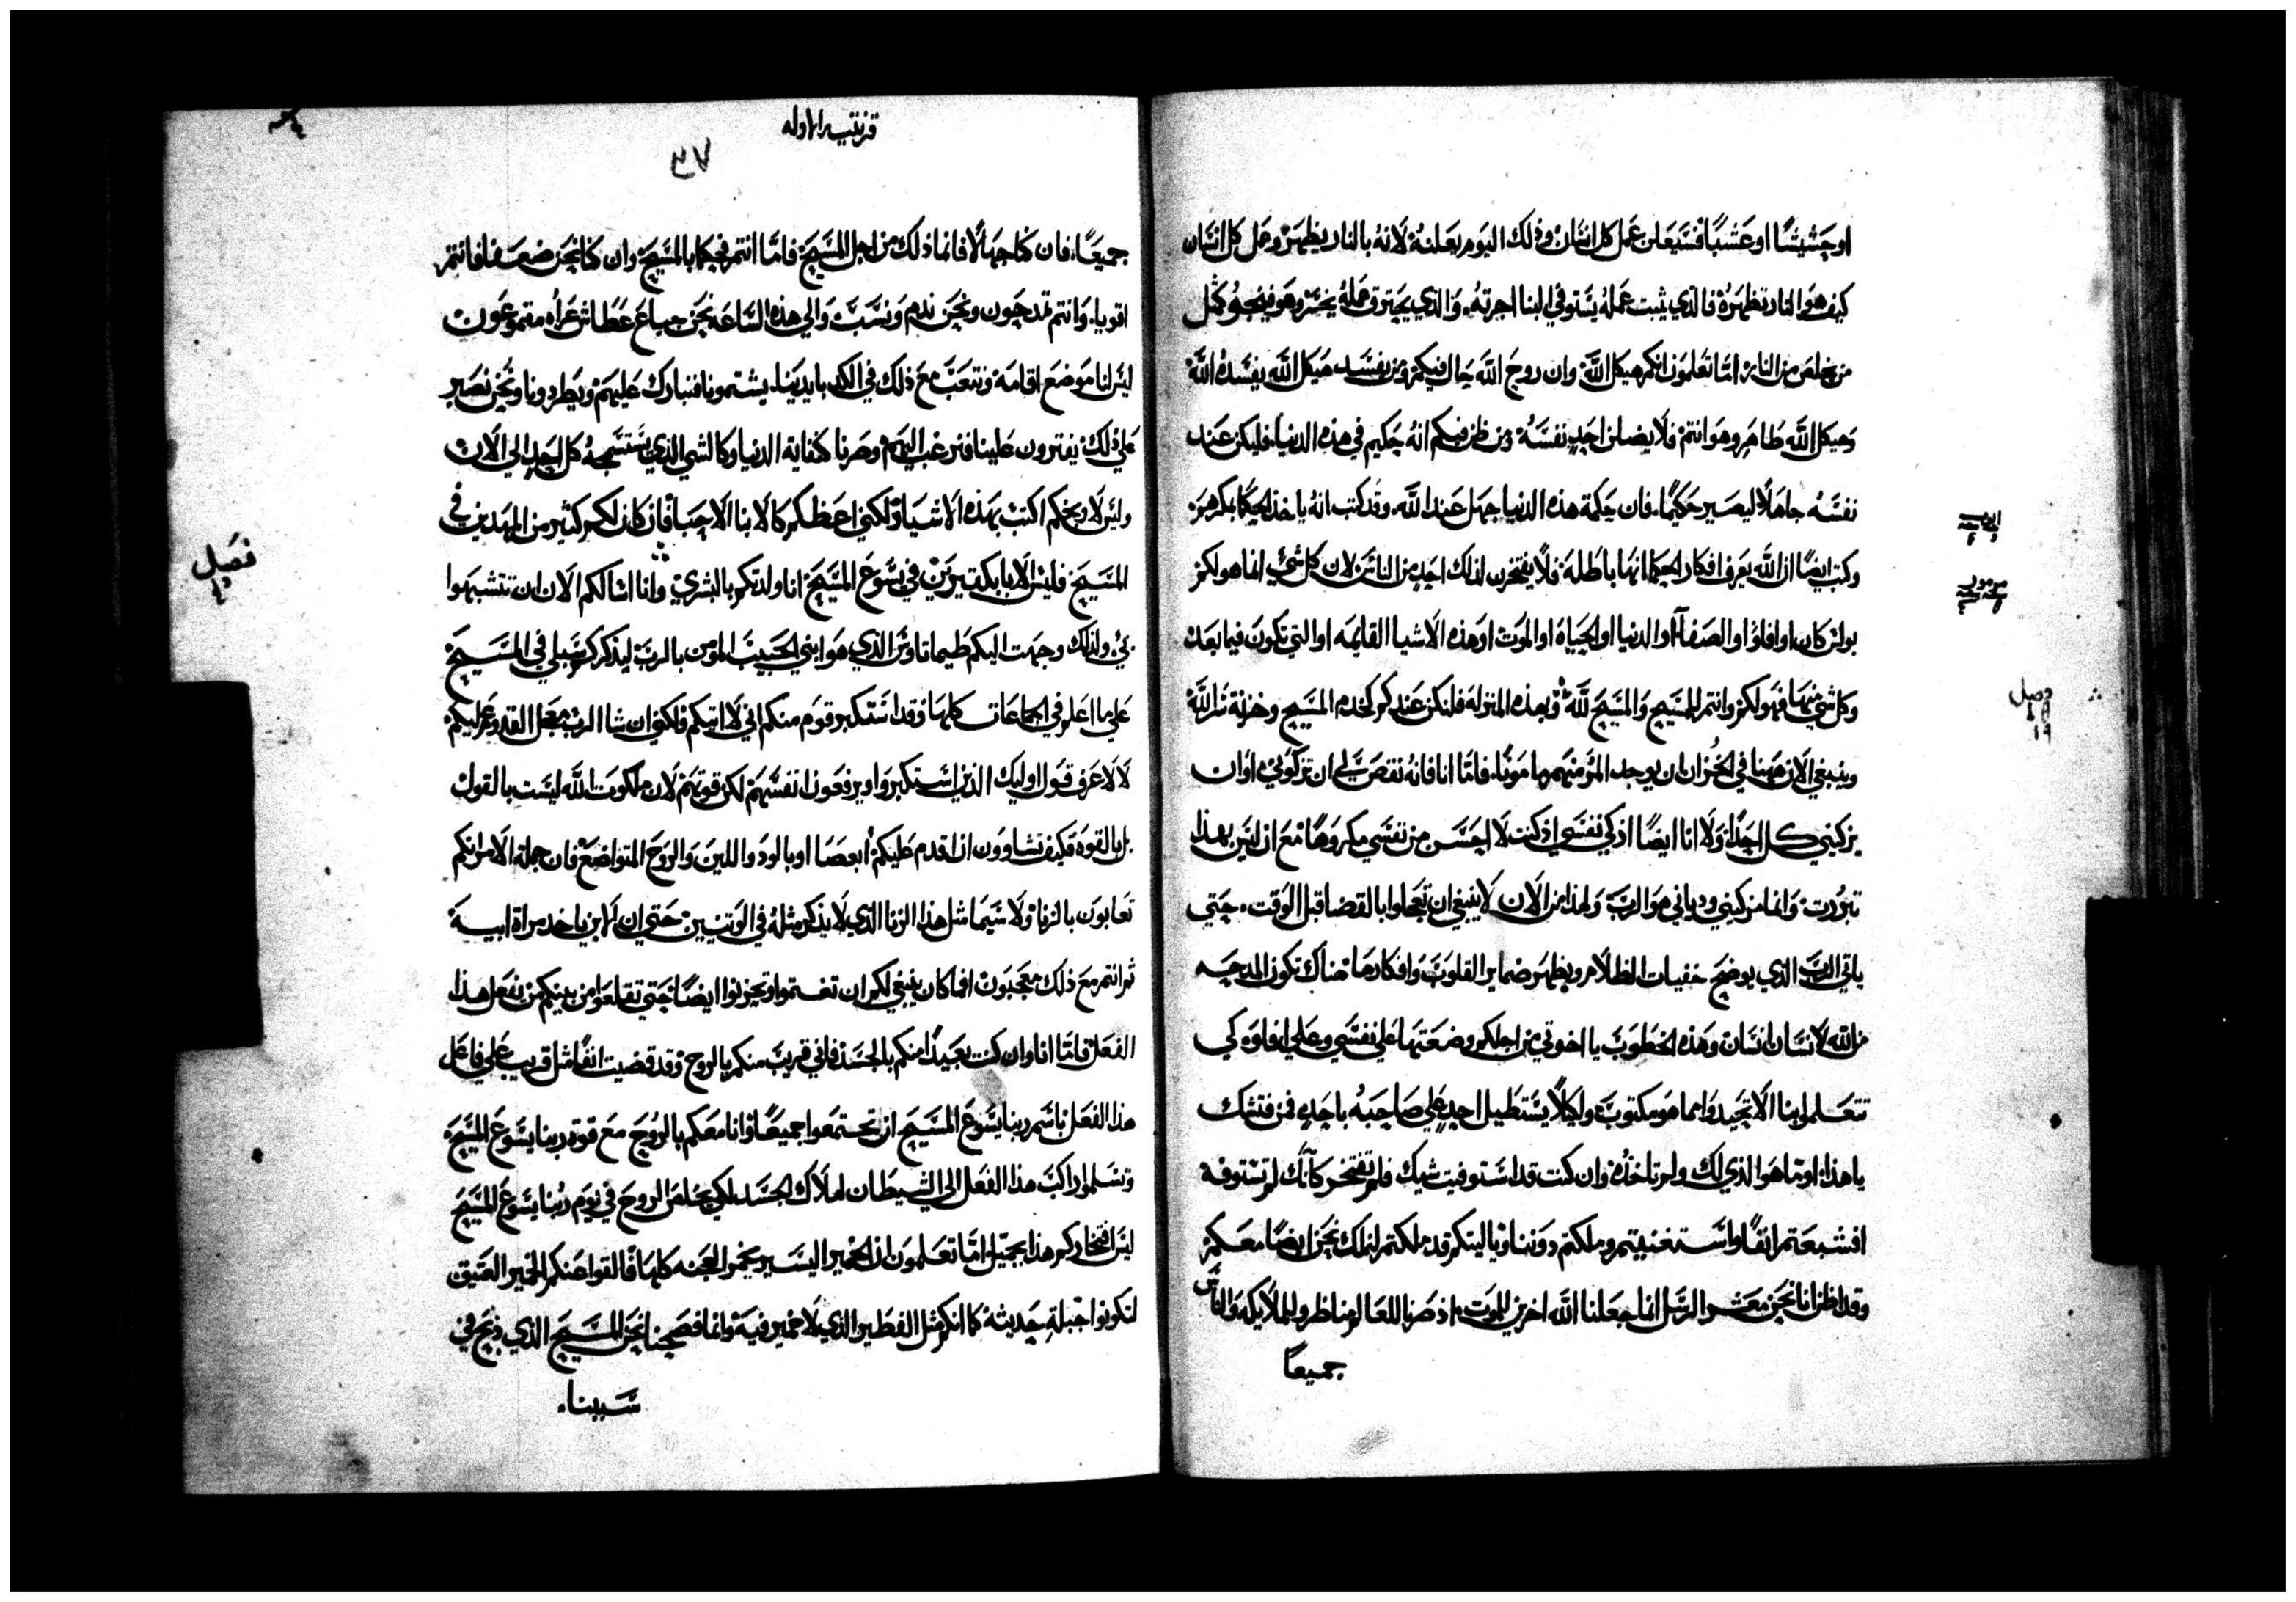 او حشيشًا او عشبًا فسيعلن عمل كل انسان وذلك اليوم يعلنه لانه بالنار يظهر وعمل كل انسان
كيف هو النار تظهره فالذي يثبت عمله يستوفي البنا اجرته والذي يحترق عمله يخسر وهو فينجو كمثل
من يخلص من النار اما تعلمون انكم هيكل الله وان روح الله حال فيكم ومن يفسد هيكل الله يفسده الله
وهيكل الله طاهر وهو انتم فلا يضلن احد نفسه ومن ظن فيكم انه حكيم في هذه الدنيا فليكن عند
نفسه جاهلًا ليصير حكيمًا فان حكمة هذه الدنيا جهل عند الله وقد كتب انه ياخذ الحكما بمكرهم
وكتب ايضًا ان الله يعرف افكار الحكما انها باطله فلا يفتخرن لذلك احد من الناس لان كل شي انما هو لكم
بولس كان او افلوا او الصفا او الدنيا او الحياه او الموت او هذه الاشيا القايمه او التي تكون فيما بعد
وكل شي منها فهو لكم وانتم للمسيح والمسيح لله وبهذه المنزله فلنكن عندكم كخدم المسيح وخزنة سر الله
وينبغي الان ههنا في الخزان ان يوجد المرؤ منهم مامونًا فاما انا فانه نقص لي ان تزكوني او ان
يزكيني كل احد ولا انا ايضًا ازكي نفسي اذ كنت لا احس من نفسي مكروهًا مع ان ليس بهذا
تبررت وانما مزكيني ودياني هو الرب ولهذا من الان لا ينبغي ان تعجلوا بالقضا قبل الوقت حتي
ياتي الرب الذي يوضح خفيات الظلام ويظهر ضماير القلوب وافكارها هناك تكون المدحه
من الله لانسان انسان وهذه الخطوب يا اخوتي من اجلكم وضعتها علي نفسي وعلي افلوه كي
تتعلموا بنا الا تحيدوا عما هو مكتوب ولكيلا يستطيل احد علي صاحبه باحد فمن فتشك
يا هذا او ما هو الذي لك ولم تاخذه وان كنت قد استوفيت شيك فلم تفتخر كانك لم تستوفه
افشبعتم انفًا واستغنيتم وملكتم دوننا ويا ليتكم قد ملكتم لنملك نحن ايضًا معكم
وقد اظن انا نحن معشر الرسل انما جعلنا الله اخرين للموت اذ صرنا للعالم مناظر وللملايكه والناس
جميعًا
فصل
١٩
قرنتيه الاوله
٣٧
جميعًا فان كنا جهالًا فانما ذلك من اجل المسيح فاما انتم فحكما بالمسيح وان كنا نحن ضعفا فانتم
اقويا وانتم تمدحون ونحن نذم ونسب والي هذه الساعه نحن جياع عطاش عراه مقموعون
ليس لنا موضع اقامه ونتعب مع ذلك في الكد بايدينا يشتمونا فنبارك عليهم ويطردونا ونحن نصبر
علي ذلك يفترون علينا فنرغب اليهم وصرنا كنفاية الدنيا وكالشي الذي يستسمجه كل احد الي الان
وليس لاوبخكم اكتب بهذه الاشيا ولكني اعظكم كالابنا الاحبا فان كان لكم كثير من المهدين في
المسيح فليس الابا بكثيرين في يسوع المسيح انا ولدتكم بالبشري وانا اسالكم الان ان تتشبهوا
بي ولذلك وجهت اليكم طيماتاوس الذي هو ابني الحبيب المومن بالرب ليذكركم سبلي في المسيح
علي ما اعلم في الجماعات كلها وقد استكبر قوم منكم اني لا اتيكم فلكني ان شا الرب معجل القدوم عليكم
لا لاعرف قول اوليك الذين استكبروا ويرفعون انفسهم لكن قوتهم لان ملكوت الله ليست بالقول
بل بالقوه فكيف تشاوون ان اقدم عليكم ابعصا او بالود واللين والروح المتواضع فان جملة الامر انكم
تعابون بالزنا ولا سيما مثل هذا الزنا الذي لا يذكر مثله في الوثنيين حتي ان الابن ياخذ مراة ابيه
ثم انتم مع ذلك معجبون افما كان ينبغي لكم ان تغتموا وتحزنوا ايضًا حتي تقلعوا من بينكم من يفعل هذا
الفعل فاما انا وان كنت بعيدًا منكم بالجسد فاني قريب منكم بالروح وقد قضيت انفًا مثل قريب علي فاعل
هذا الفعل باسم ربنا يسوع المسيح ان تجتمعوا جميعًا وانا معكم بالروح مع قوة ربنا يسوع المسيح
وتسلموا راكب هذا الفعل الي الشيطان لهلاك الجسد لكي يخلص الروح في يوم ربنا يسوع المسيح
ليس افتخاركم هذا بجميل اما تعلمون ان الخمير اليسير يخمر العجنه كلها فالقوا عنكم الخمير العتيق
لتكونوا جبلة حديثه كما انكم مثل الفطير الذي لا خمير فيه وانما فصحنا نحن المسيح الذي ذبح في
سببنا
فصل